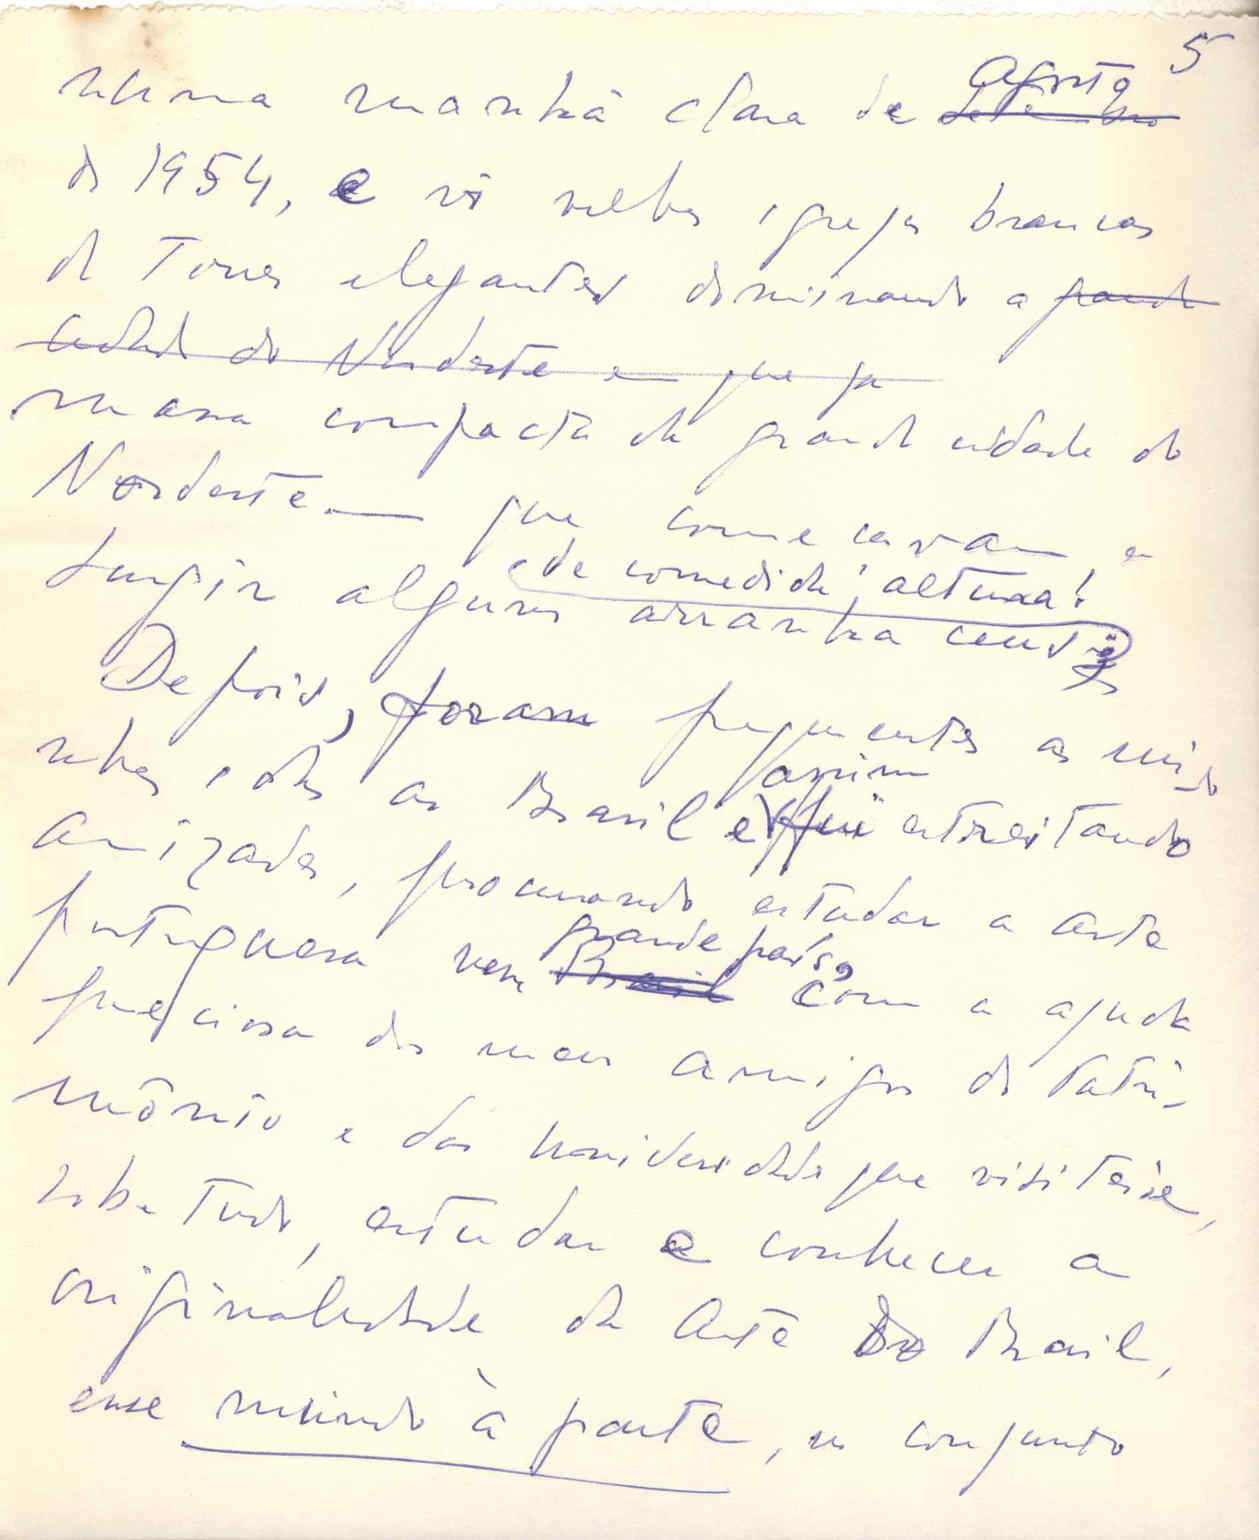 5
numa manhã clara de Setembro Agosto
de 1954, e vi velhas igrejas brancas
de Torres elegantes dominando a grande
cidade do Nordeste em que já
massa compacta da grande cidade do
Nordeste — que começavam a
de comedida, altura!
surgir alguns arranha ceus
Depois, foram frequentes as mi-
nhas idas ao Brasil e assim fui estreitando
amizades, procurando estudar a arte
portuguesa nesse Brasil grande país, com a ajuda
preciosa dos meus amigos do Patri-
mônio e das Universidades que visitei e,
sobretudo, estudar e conhecer a
originalidade da Arte do Brasil,
esse mundo à parte, no conjunto